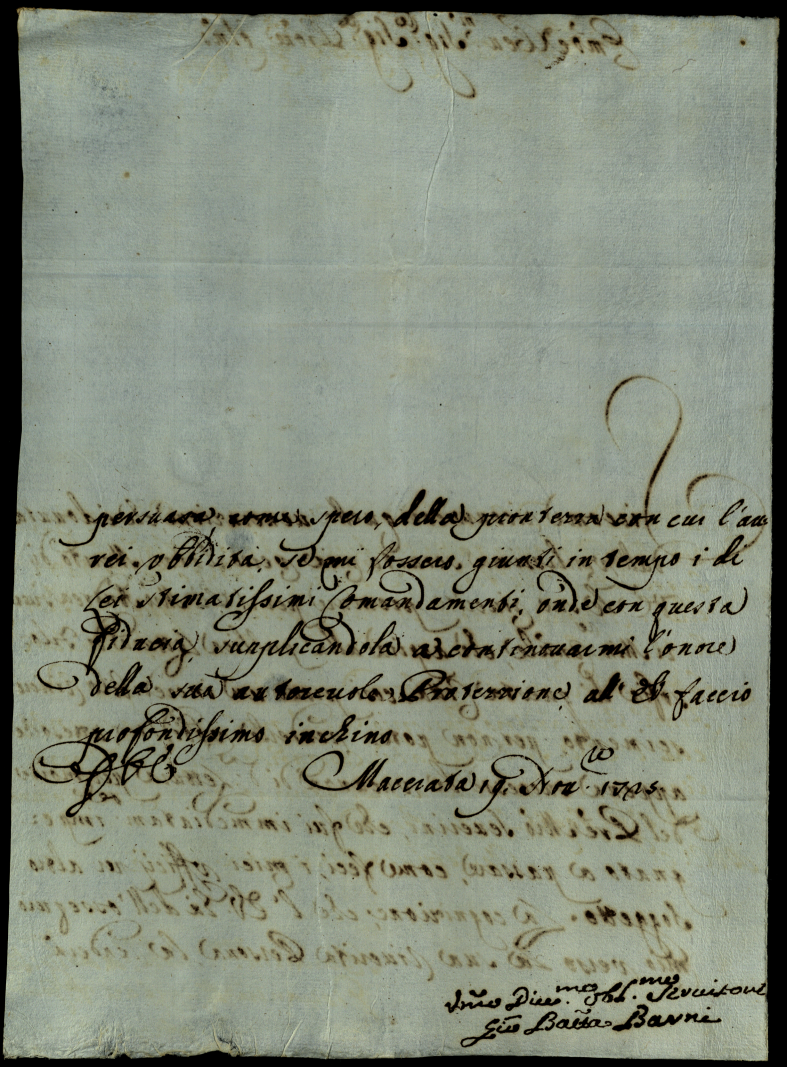 persuasa, come spero, della prontezza con cui l'av
rei obbidita, se mi fossero giunti in tempo i di
Lei stimatissimi Comandamenti, onde con questa
fiducia, supplicandola a continuarmi l'onore
della sua autorevole Protezzione, all' faccio
profondissimo inchino
Macerata 19. 1725
Umo Divmo obblmo Servitore
Gio Batta Barni